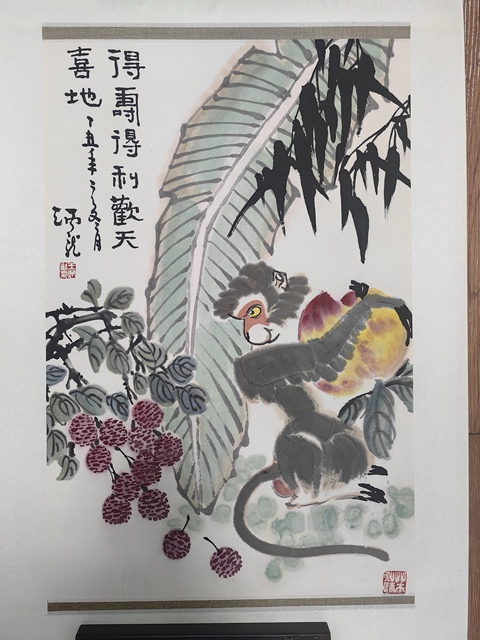 得壽得利歡天
喜地丁丑年之冬月
炳龙